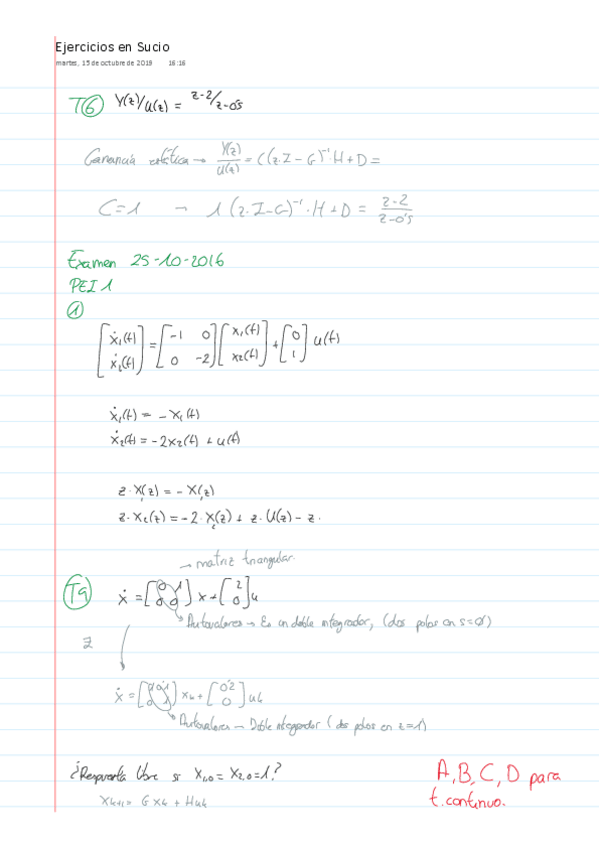 Ejercicios en Sucio
martes, 15 de octubre de 2019 16:16
T6 Y(z)/U(z) = z-2/z-0's
Ganancia estática → Y(z)/U(z) = C(z·I-G)⁻¹·H+D =
C=1 → 1(z·I-G)⁻¹·H+D = z-2/z-0's
Examen 25-10-2016
PEI 1
1
[ẋ₁(t) ẋ₂(t)] = [-1 0 0 -2] [x₁(t) x₂(t)] + [0 1] u(t)
ẋ₁(t) = -x₁(t)
ẋ₂(t) = -2x₂(t) + u(t)
z·X₁(z) = -X₁(z)
z·X₂(z) = -2·X₂(z) + z·U(z) - z·
→ matriz triangular.
T9 ẋ = [0 1 0 0] x + [2 0] u
Autovalores → Es un doble integrador, (dos polos en s=0)
z
ẋ = [ 0 1] xₖ + [0'2 0] uₖ
Autovalores → Doble integrador (dos polos en z=1)
¿Respuesta libre si x₁,₀ = x₂,₀ = 1?
xₖ₊₁ = Gxₖ + Huₖ
A, B, C, D para
t. continuo.